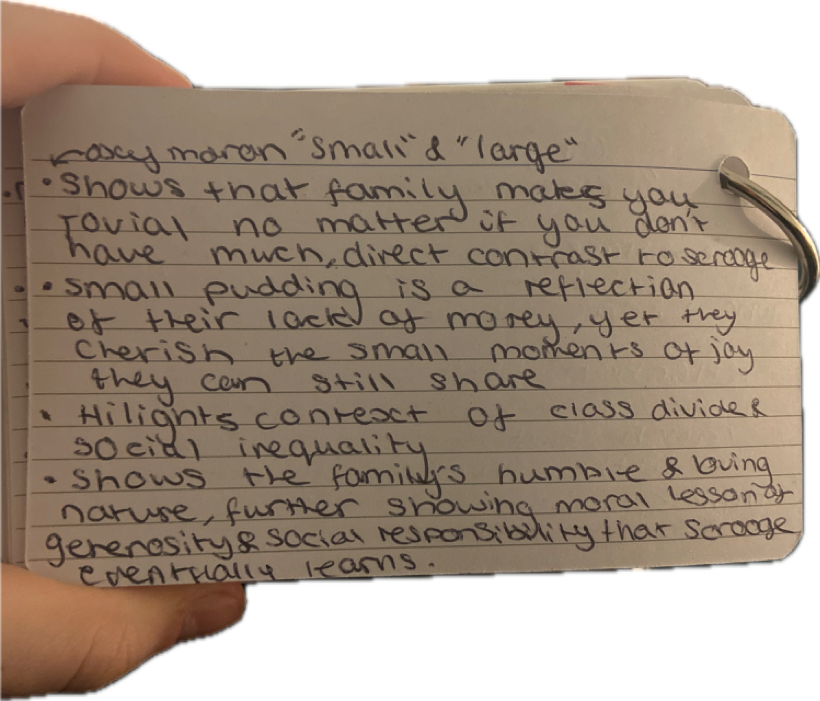 oxy moron "small" & "large"
• Shows that family makes you
jovial no matter if you don't
have much, direct contrast to scrooge
• small pudding is a reflection
of their lack of money, yet they
cherish the small moments of joy
they can still share
• Hilights context of class divide &
social inequality
• shows the family's humble & loving
nature, further showing moral lesson of
generosity & social responsibility that Scrooge
eventually learns.